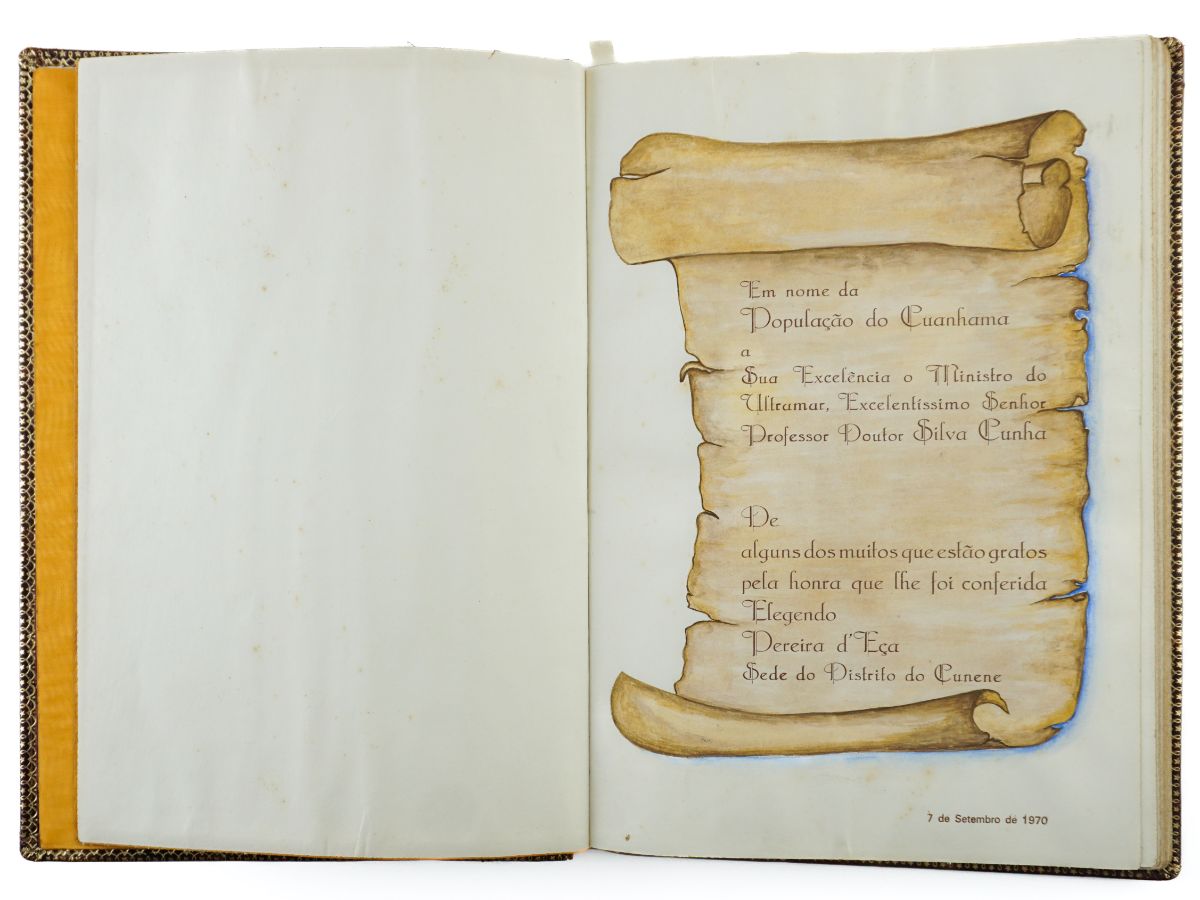 Em nome da
População do Cuanhama
a
Sua Excelência o Ministro do
Ultramar, Excelentíssimo Senhor
Professor Doutor Silva Cunha
De
alguns dos muitos que estão gratos
pela honra que lhe foi conferida
Elegendo
Pereira d'Eça
Sede do Distrito do Cunene
7 de Setembro de 1970